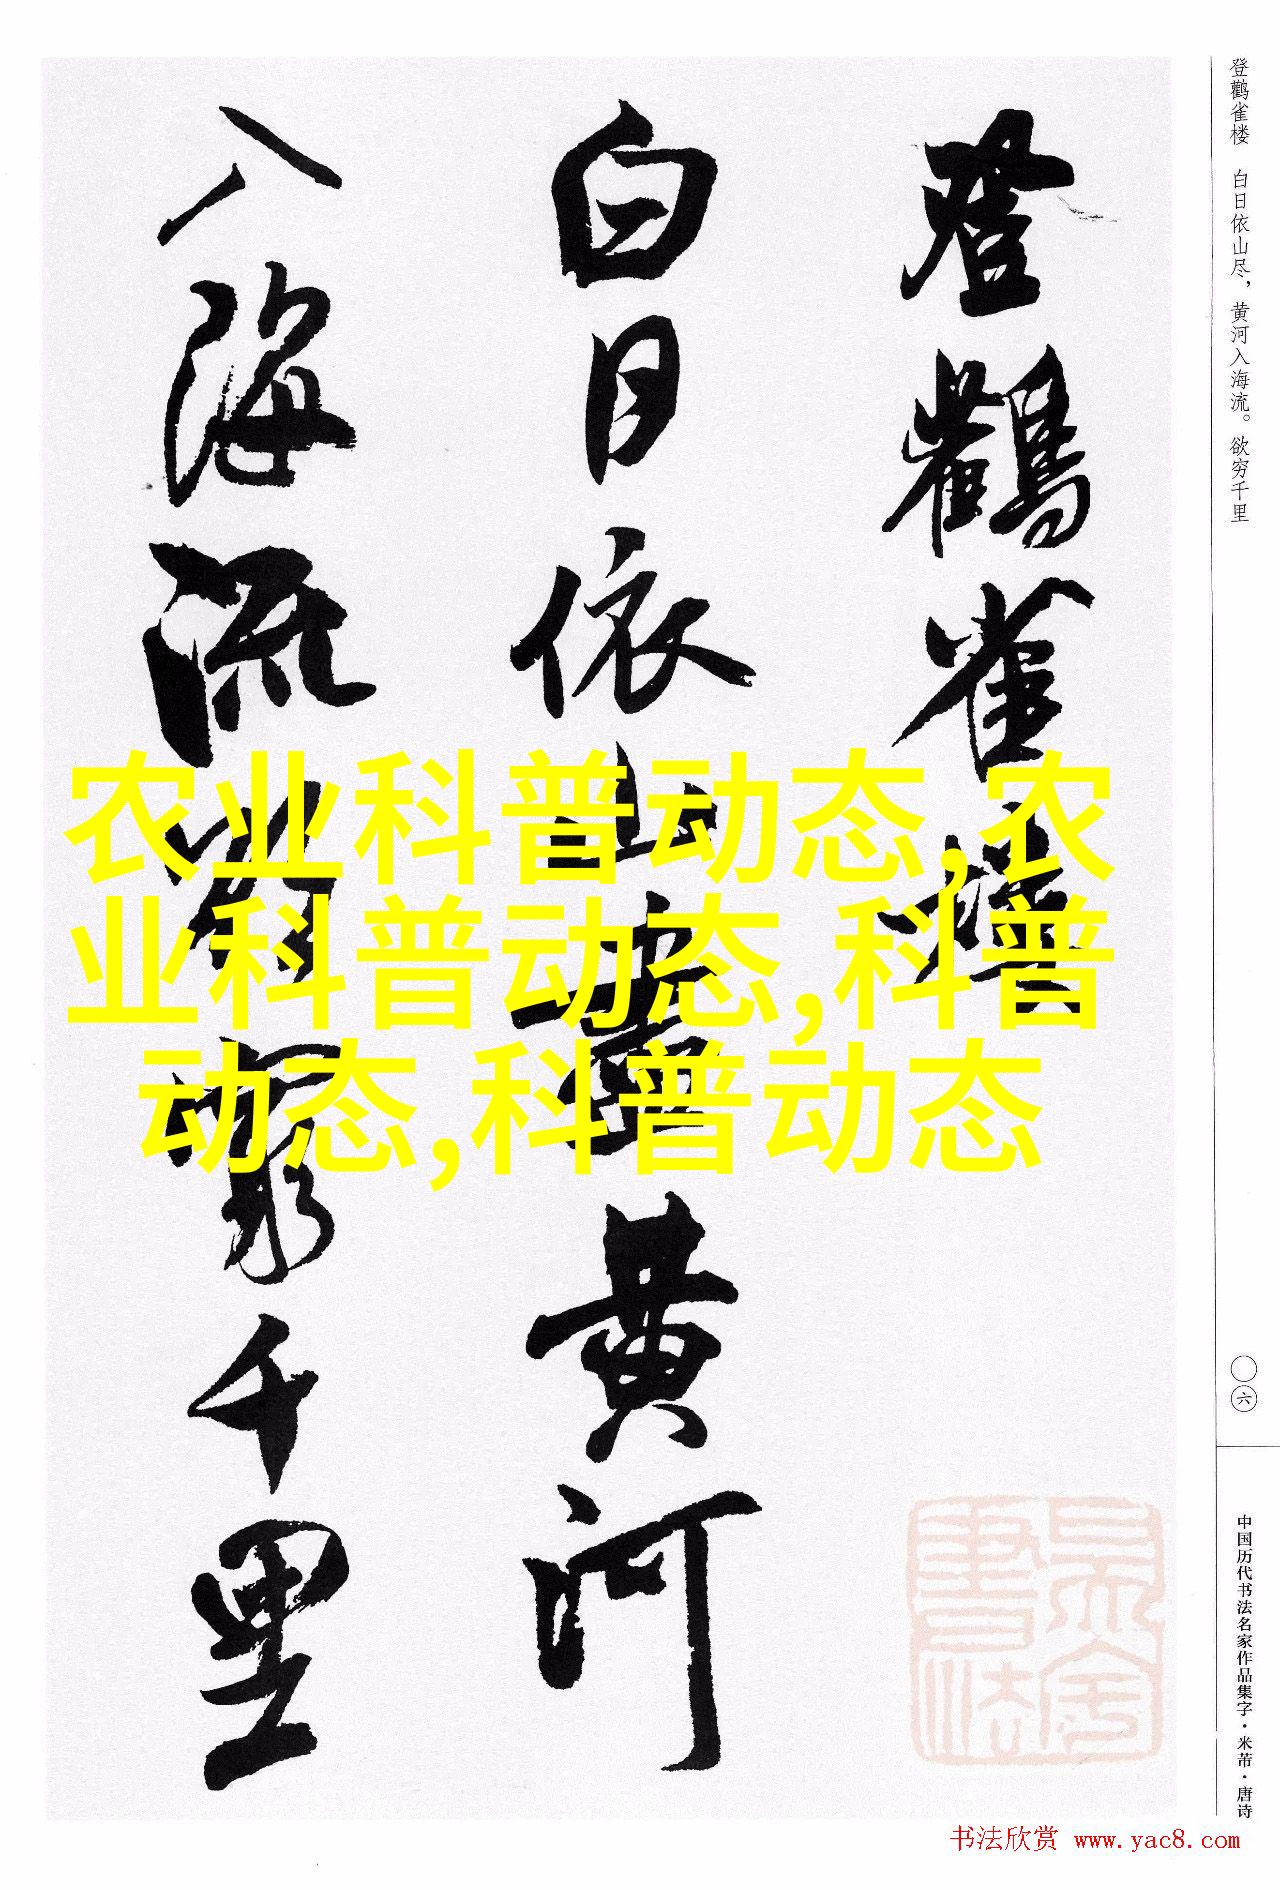 登鹳雀楼　白日依山尽，黄河入海流。欲穷千里
登鸛雀樓
白日依山盡黄河
入海流欲窮千里
农业科普动态,农
业科普动态,科普
动态,科普动态
〇六
中国历代书法名家作品集字·米芾·唐诗
书法欣赏 www.yac8.com